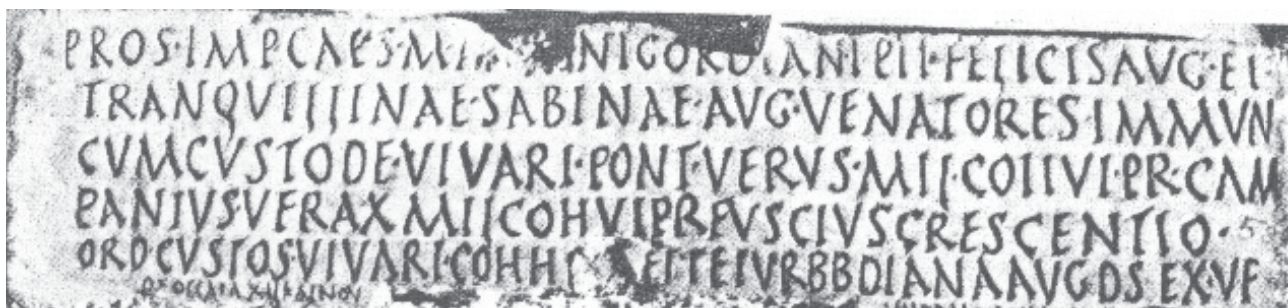 PRO S·IMP CAES·M NI GORDIANI PII·FELICIS AVG·ET
TRANQVILLINAE·SABINAE·AVG·VENATORES IMMVN
CVM CVSTODE·VIVARI·PONT·VERVS·MIL·COH VI·PR·CAM
PANIVS·VERAX MIL COH VI PR FVSCIVS CRESCENTIO·
ORD CVSTOS·VIVARI·COHH ET ET VRBB DIANA AVG·D S EX·V